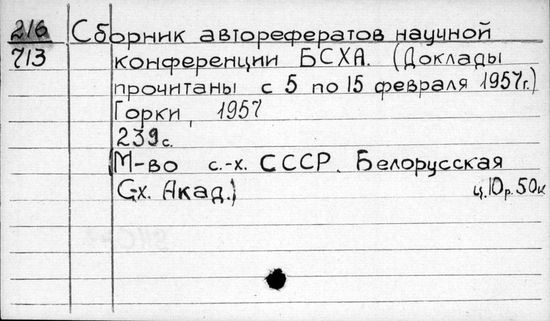 216
713
Сборник авторефератов научной
конференции БСХА. (Доклады
прочитаны с 5 по 15 февраля 1957г.)
Горки, 1957
239с.
(М-во с.-х. СССР. Белорусская
С.х. Акад.) ц.10р.50к